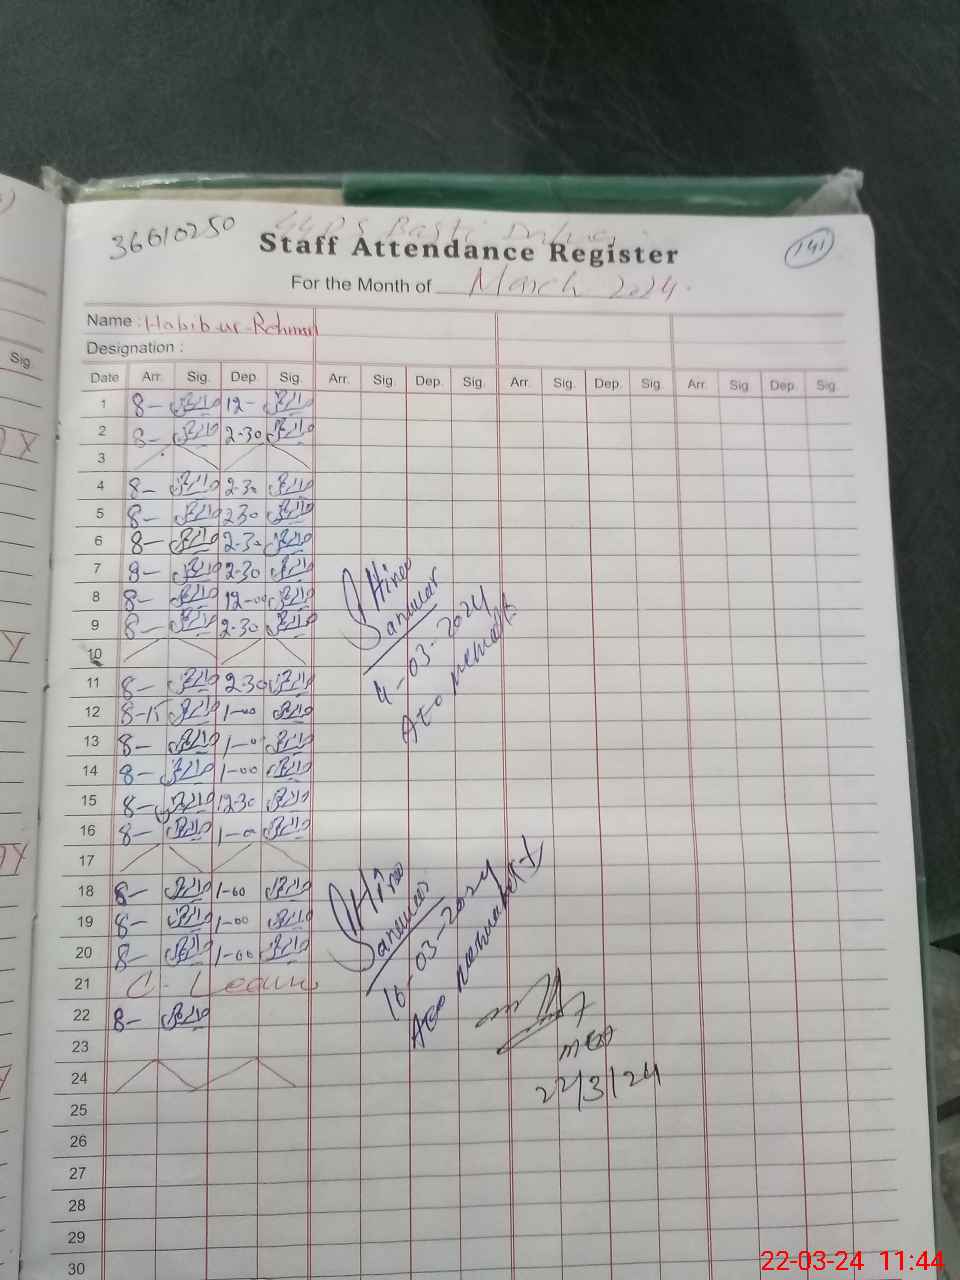 36610250
GGPS Basti
141
Staff Attendance Register
For the Month of March 2024.
Name : Habib-ur-Rehman
Designation :
Date Arr. Sig. Dep. Sig. Arr. Sig. Dep. Sig. Arr. Sig. Dep. Sig. Arr. Sig Dep Sig.
Sig.
1 8- 12-
2 8- 2-30
3
4 8- 2-30
5 8- 2 30
6 8- 2-30
7 9- 2-30
8 8- 12-00
9 8- 2-30
10
11 8- 2-30
12 8-15 1-00
13 8- 1-0
14 8- 1-00
15 8- 12-30
16 8- 1-0
17
18 8- 1-00
19 8- 1-00
20 8- 1-00
21 C. Leave
22 8-
23
24
25
26
27
28
29
30
Hina
Sanawar
4-03-2024
Aeo
Hina
Sanawar
16-03-2024
Aeo
22/3/24
22-03-24 11:44